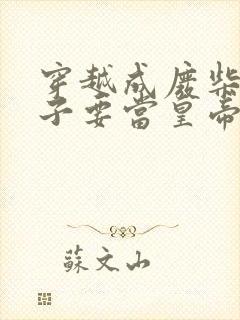 穿越成废柴
子要当皇帝
蘇文山